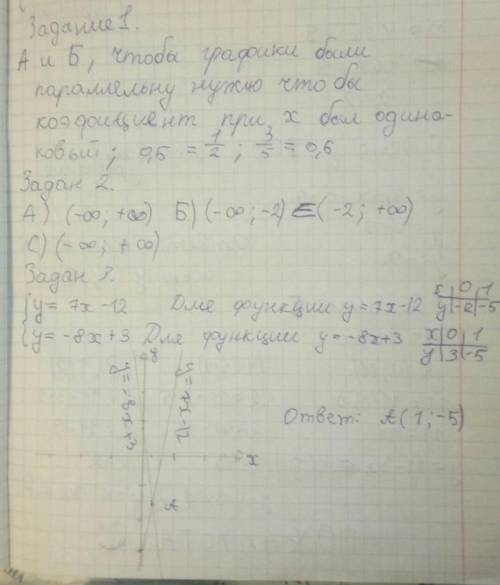 Задание 1.
А и Б, чтобы графики были
параллельну нужно что бы
коэффициент при x был одина-
ковый; 0,5 = 1/2; 3/5 = 0,6
Задан 2.
А) (-∞; +∞) Б) (-∞; -2) ∈ (-2; +∞)
С) (-∞; +∞)
Задан 3.
{y = 7x-12 Для функции y = 7x-12 x|0|1 y|-12|-5
{y = -8x+3 Для функции y = -8x+3 x|0|1 y|3|-5
y
y = -8x+3
y = 7x-12
Ответ: A(1; -5)
x
A